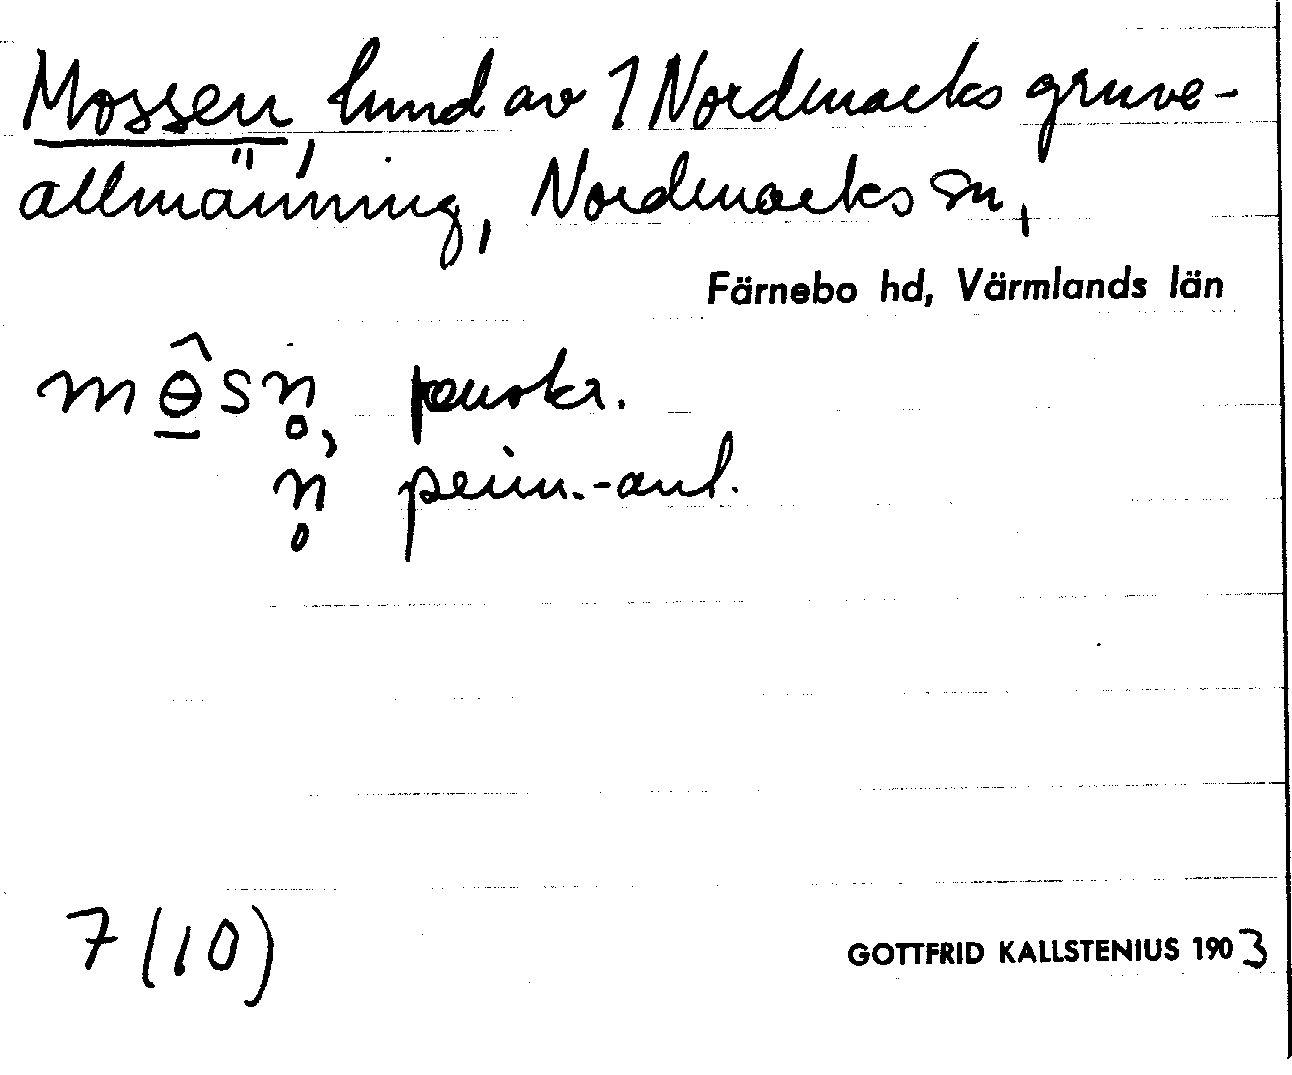 Mossen, lund av 1 Nordmarks gruve-
allmänning, Nordmarks sn,
Färnebo hd, Värmlands län
mɵ̲̂sn̥, punkr.
n̥ peim.-anl.
7 (10)
GOTTFRID KALLSTENIUS 1903